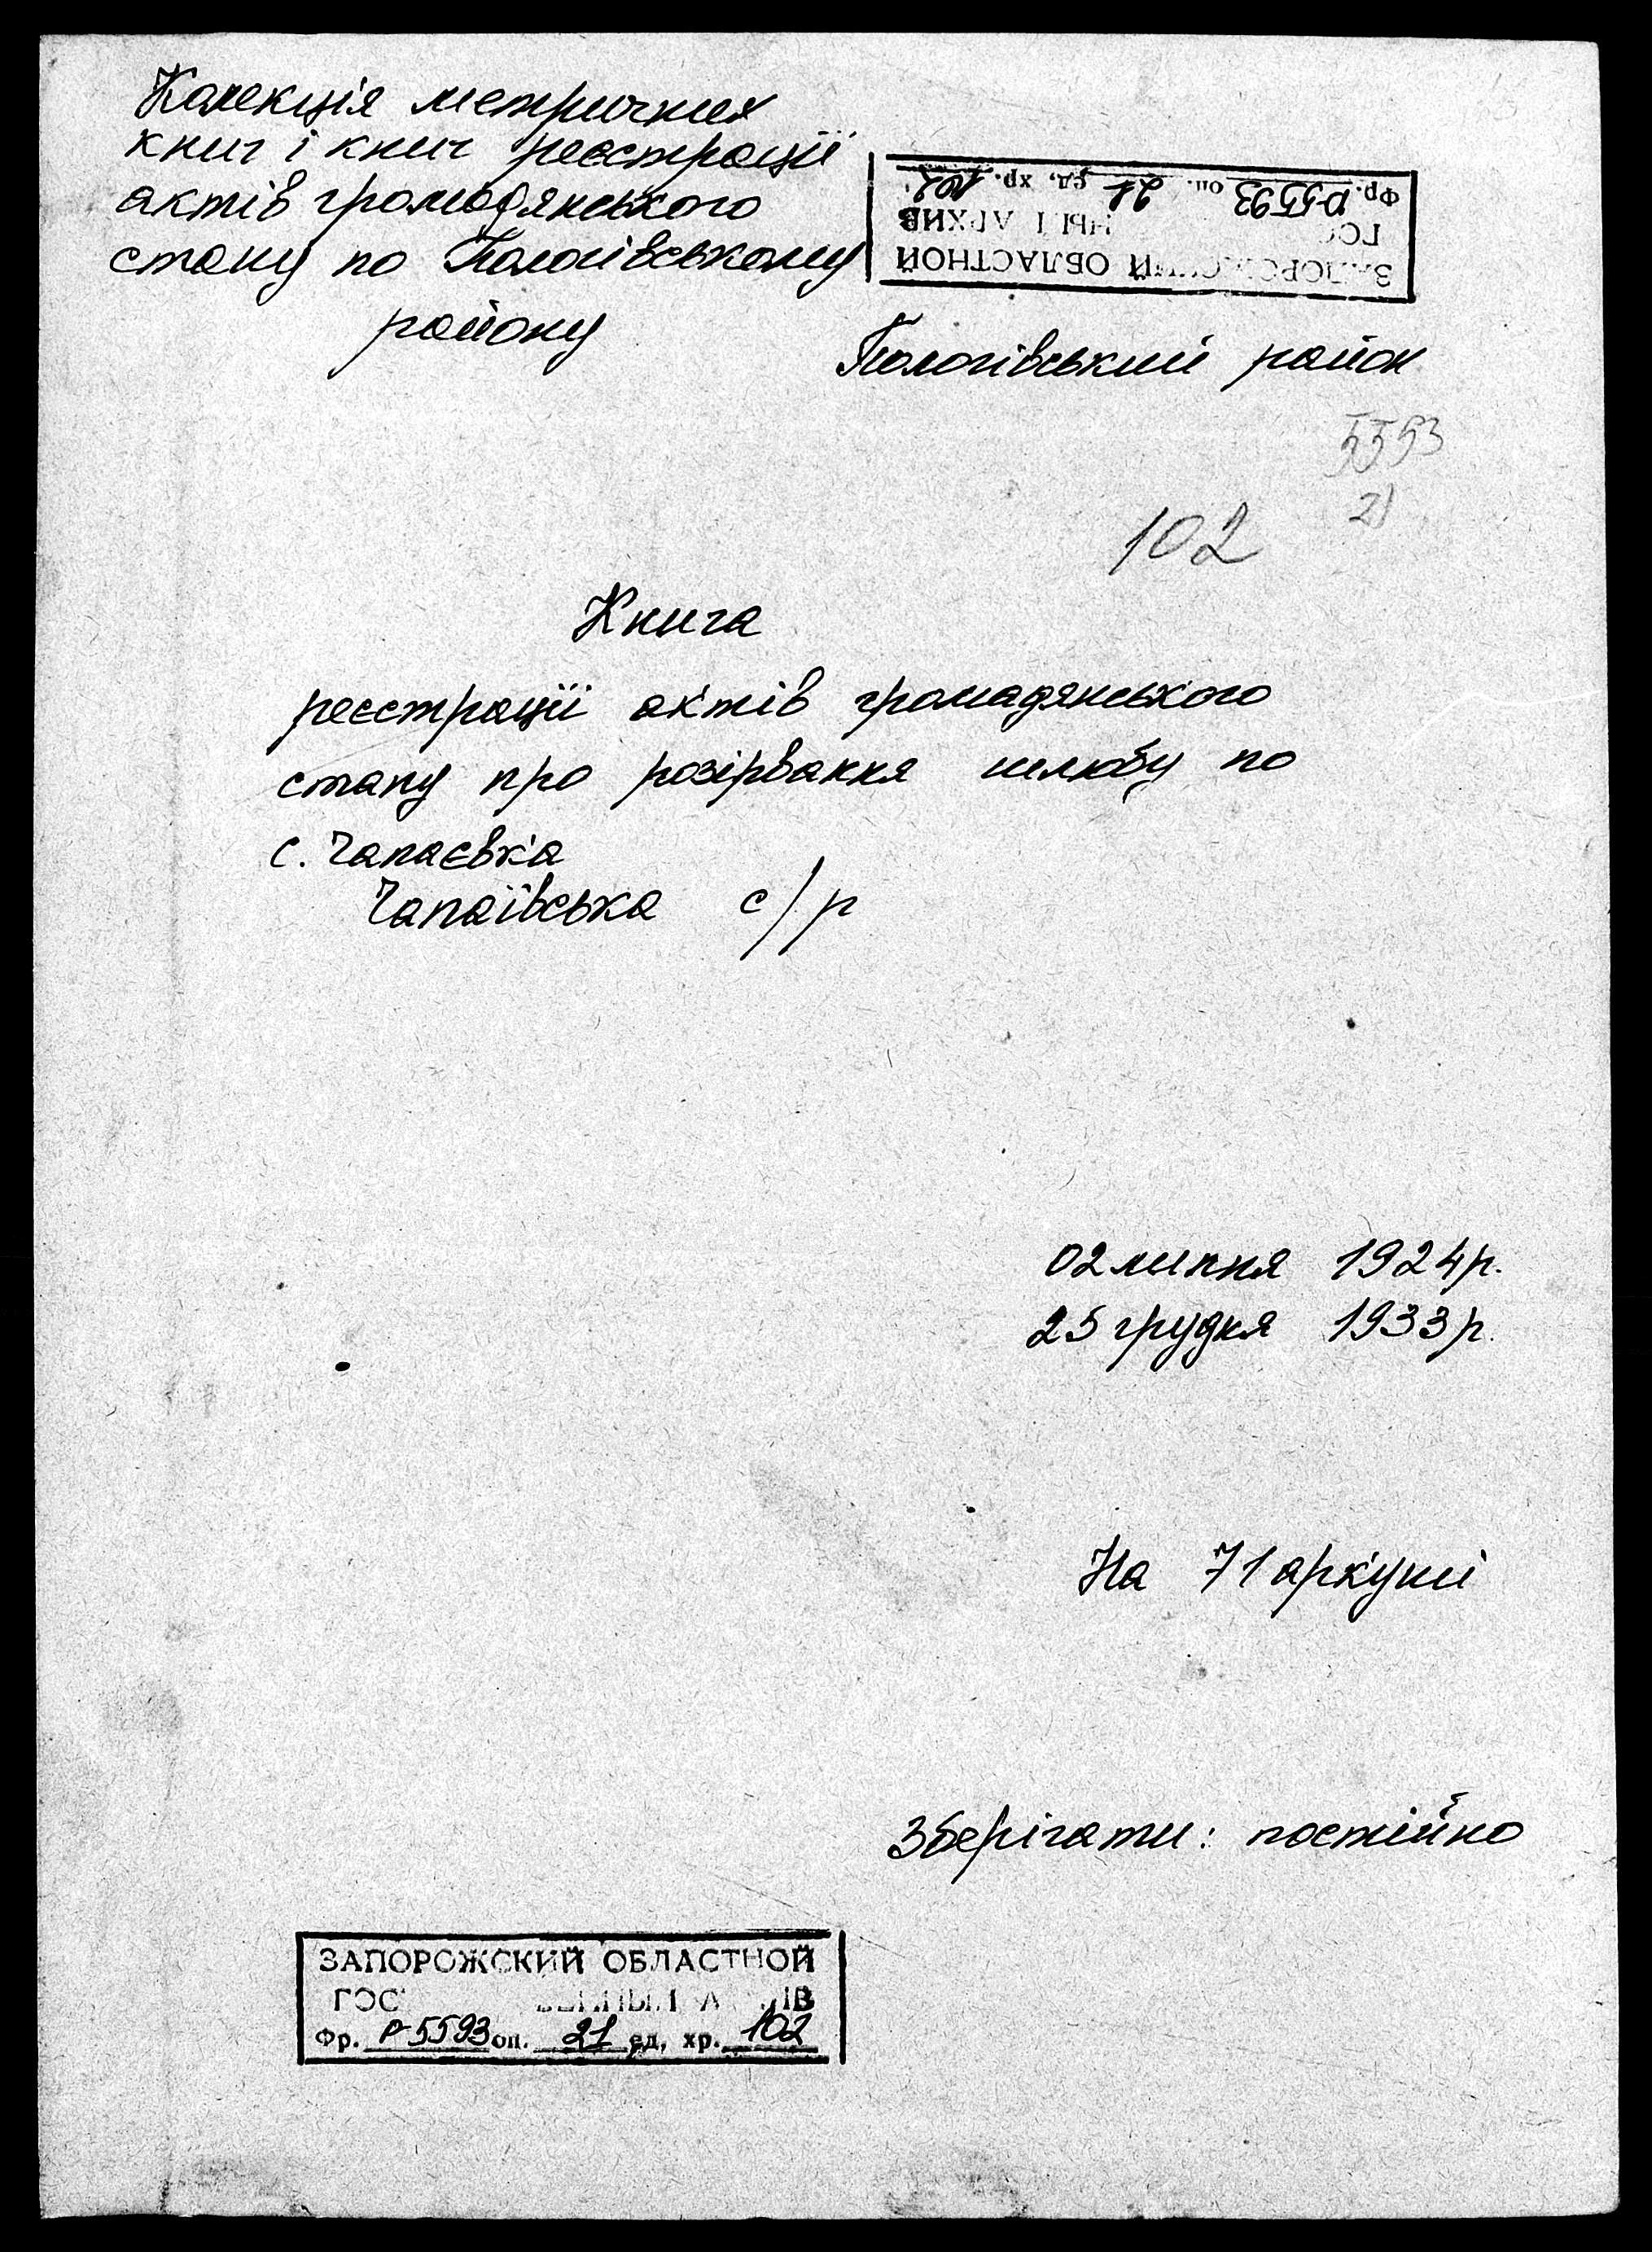 Колекція метричних
книг і книг реєстрації
актів громадянського
стану по Пологівському
району
ЗАПОРОЖСКИЙ ОБЛАСТНОЙ
АРХИВ
Фр. Р-5593 оп. 21 ед. хр. 102
Пологівський район
5593
21
102
Книга
реєстрації актів громадянського
стану про розірвання шлюбу по
с. Чапаєвка
Чапаївська с/р
02 липня 1924 р.
25 грудня 1933 р.
На 71 аркуші
Зберігати: постійно
ЗАПОРОЖСКИЙ ОБЛАСТНОЙ
Фр. Р-5593 оп. 21 ед, хр. 102